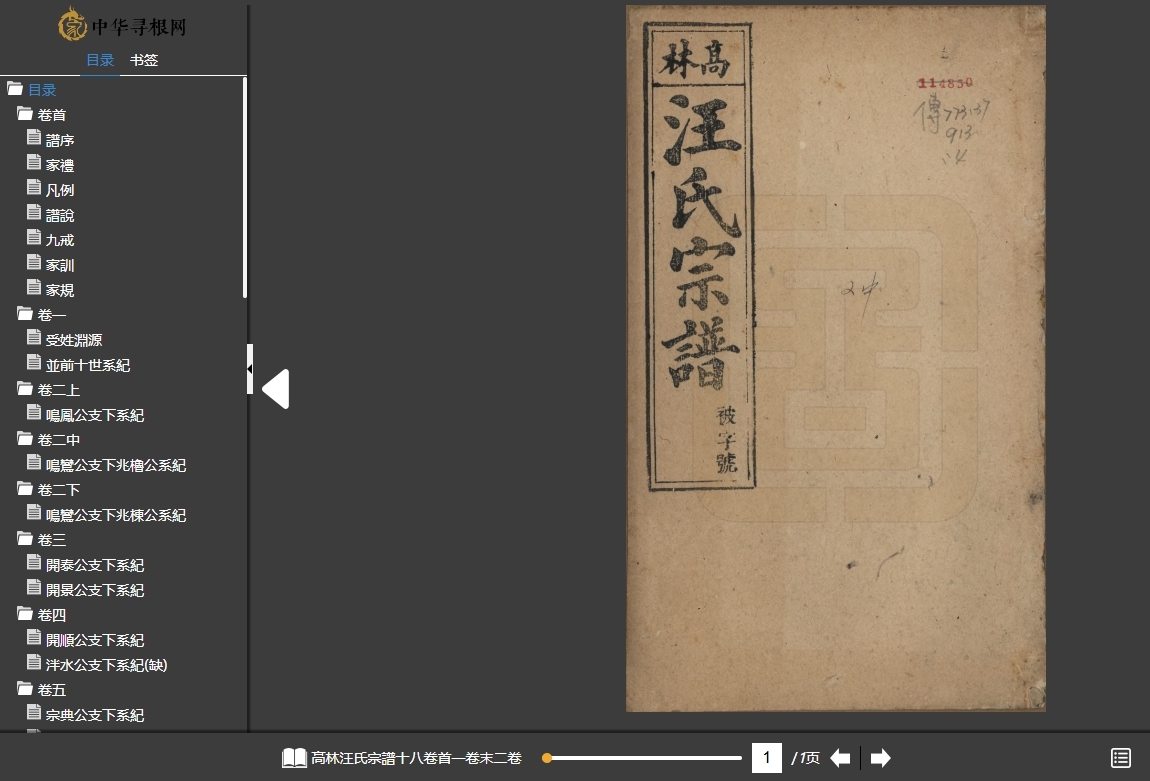 中华寻根网
目录 书签
目录
卷首
譜序
家禮
凡例
譜說
九戒
家訓
家規
卷一
受姓淵源
並前十世系紀
卷二上
鳴鳳公支下系紀
卷二中
鳴鸞公支下兆櫓公系紀
卷二下
鳴鸞公支下兆棟公系紀
卷三
開泰公支下系紀
開景公支下系紀
卷四
開順公支下系紀
泮水公支下系紀(缺)
卷五
宗典公支下系紀
高林
汪氏宗譜
被字號
114850
傳773.37
913
:4
高林汪氏宗譜十八卷首一卷末二卷
1 /1页